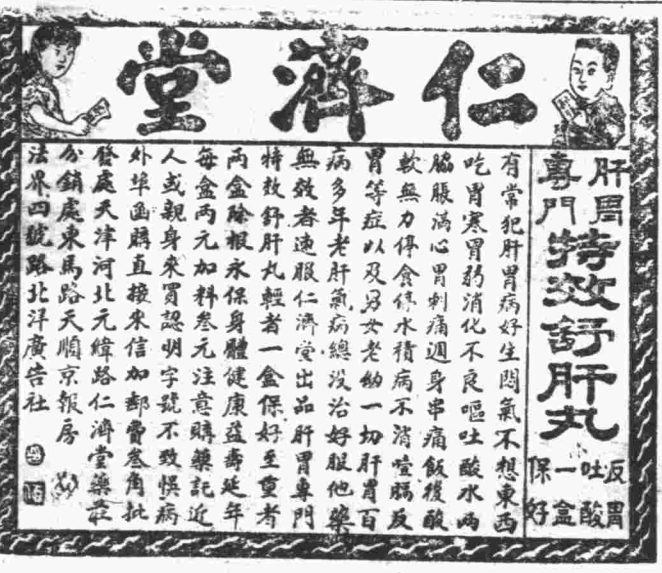 仁濟堂
肝胃專門
特效舒肝丸
反胃吐酸一盒保好
有常犯肝胃病好生悶氣不想東西
吃胃寒胃弱消化不良嘔吐酸水両
脇脹滿心胃刺痛週身串痛飯後酸
軟無力停食停水積病不消噎膈反
胃等症以及男女老幼一切肝胃百
病多年老肝氣病總没治好服他藥
無效者速服仁濟堂出品肝胃專門
特效舒肝丸輕者一盒保好至重者
両盒除根永保身體健康益壽延年
每盒両元加料叁元注意購藥記近
人或親身來買認明字號不致悞病
外埠函購直接來信加郵費叁角批
發處天津河北元緯路仁濟堂藥莊
分銷處東馬路天順京報房
法界四號路北洋廣告社